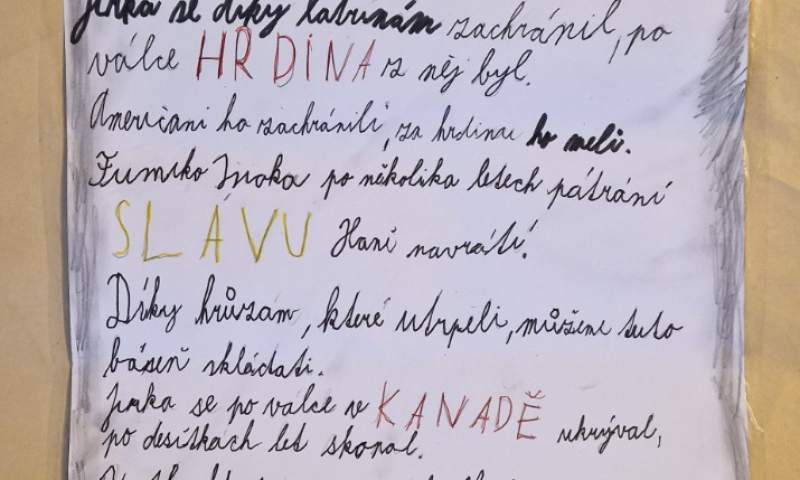 Jirka se díky latrínám zachránil, po
válce HRDINA z něj byl.
Američani ho zachránili, za hrdinu ho meli.
Fumiko Inoka po několika letech pátrání
SLÁVU Haně navrátí!
Díky hrůzám, které utrpěli, můžeme tuto
báseň skládati.
Jirka se po válce v KANADĚ ukrýval,
po desítkách let skonal.